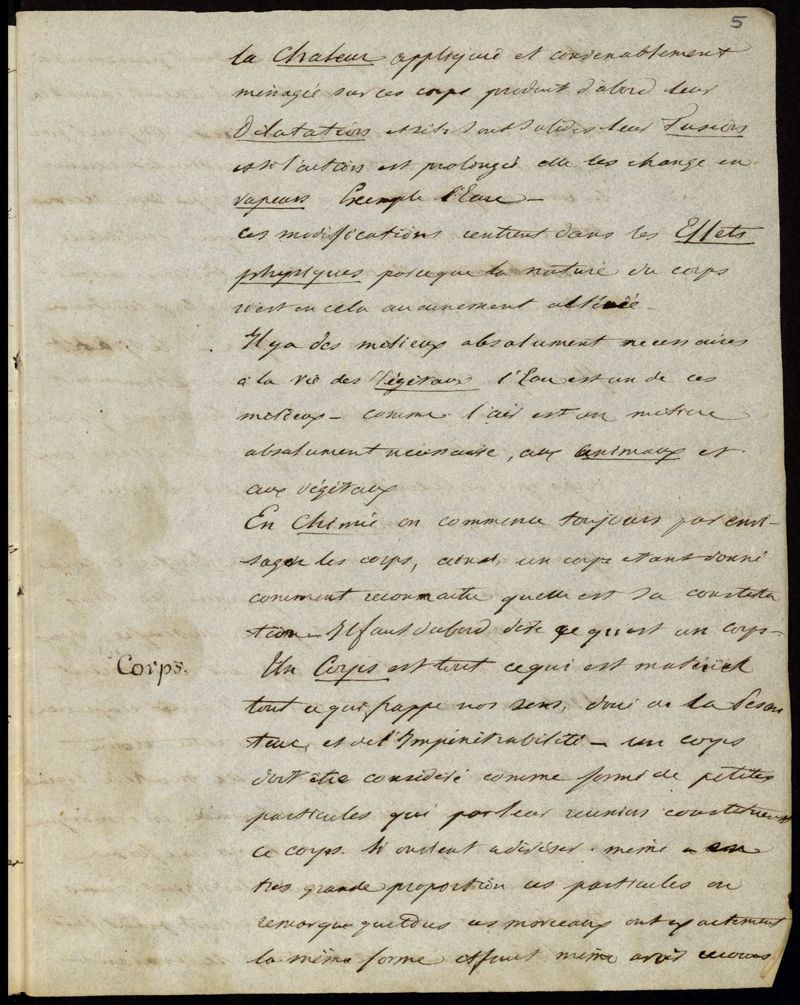 5
la Chaleur appliquée et convenablement
ménagée sur ces corps produit d'abord leur
Dilatation et s'ils sont solides leur Fusion
et si l'action est prolongée elle les change en
vapeurs Exemple l'Eau –
ces modifications rentrent dans les Effets
physiques parceque la nature du corps
n'est en cela aucunement altérée –
Il y a des milieux absolument necessaires
à la vie des Végétaux l'Eau est un de ces
milieux – comme l'air est un milieu
absolument necessaire, aux animaux et
aux végétaux
En Chimie on commence toujours par envi-
sager les corps, ainsi, un corps etant donné
comment reconnaitre quelle est sa constitu
tion – Il faut d'abord dire ce qu'est un corps –
Corps.
Un Corps est tout ce qui est matériel
tout ce qui frappe nos sens, doué de la Pesan
teur, et de l'Impénétrabilité – un corps
doit être considéré comme formé de petites
particules qui par leur reunion constituent
ce corps. Si on vient a diviser même en
très grande proportion ces particules on
remarque que tous ces morceaux ont exactement
la même forme et faut même avoir recours